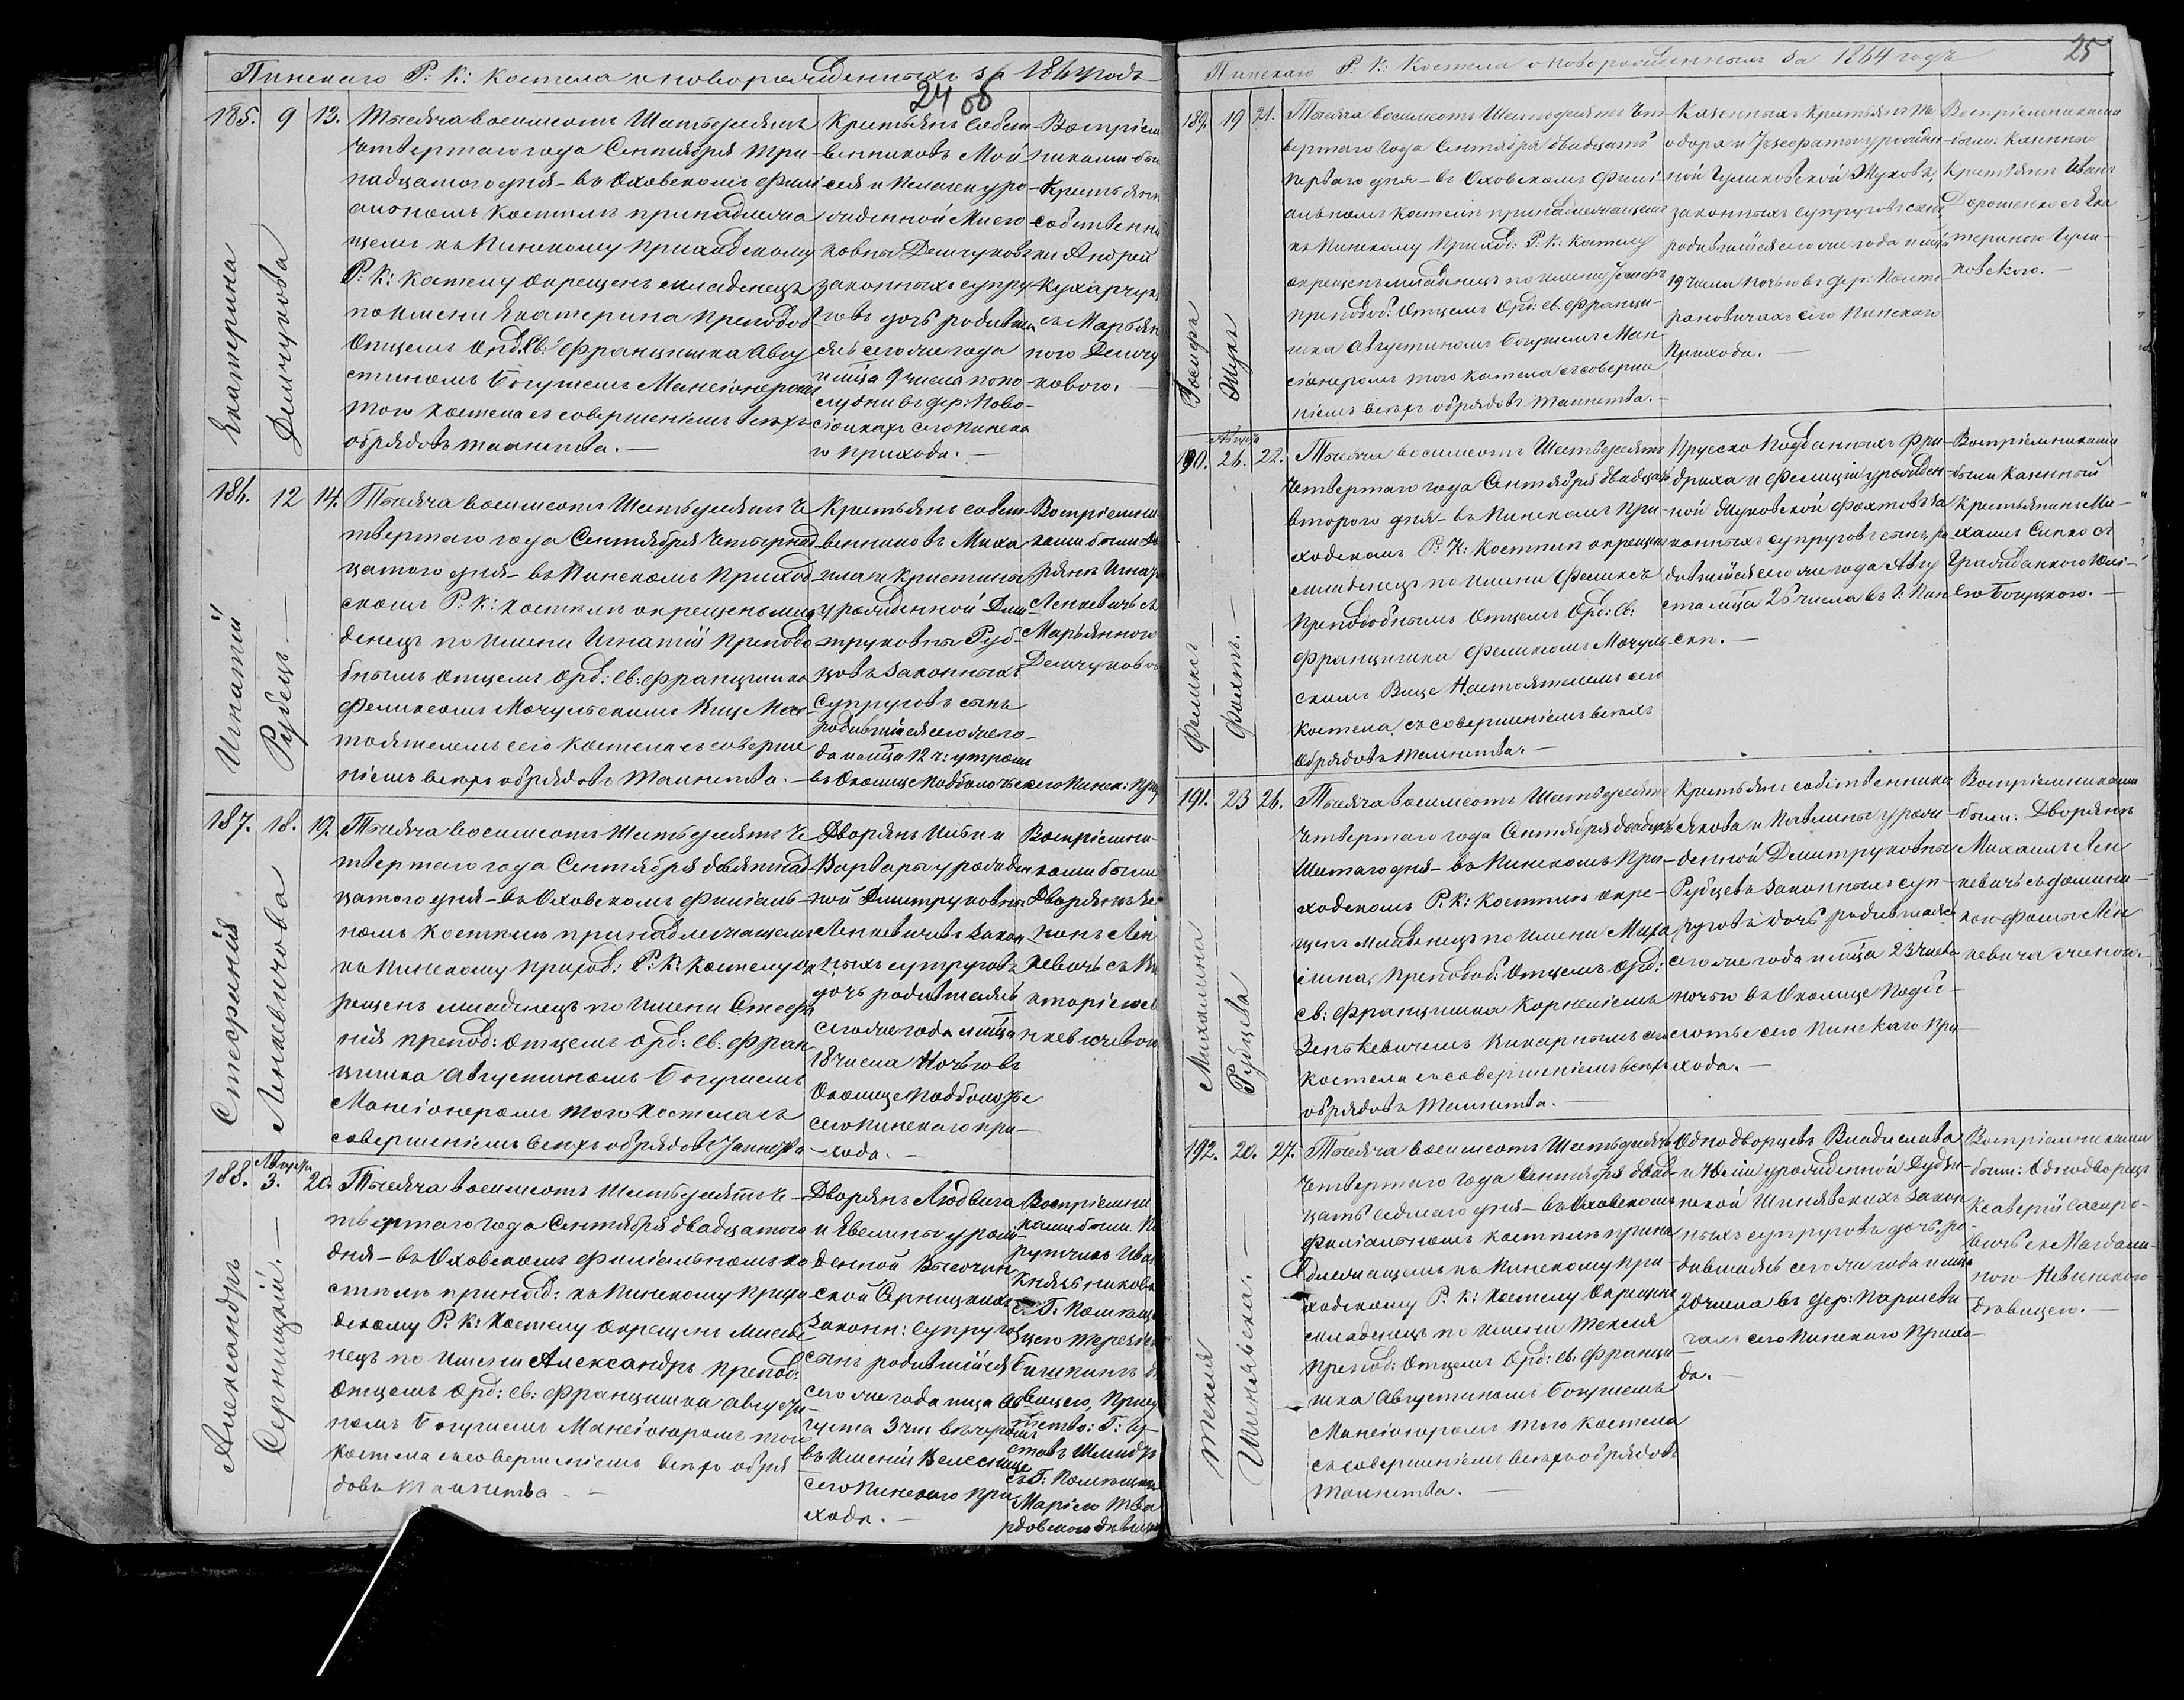 Пинскаго Р: К: Костела о новорожденныхъ за 1864 годъ
24 об
185. 9 13.
Екатерина
Демчукова
Тысяча восимсотъ Шестьдесятъ
Четвертаго года Сентября три-
надцатого дня - въ Оховскомъ Фили
альномъ Костелѣ принадлежа
щемъ къ Пинскому Приходскому
Р: К: Костелу окрещенъ младенецъ
по имени Екатерина Преподоб
Отцемъ Орд. Св: Францишка Авгу
стиномъ Богушемъ Мансіонеромъ
того Костела съ совершеніемъ всѣхъ
обрядовъ таинства. —
Крестьянъ собст
венниковъ Мой
сея и Пелагеи уро
жденной Мисю
ковны Демчуковъ
законныхъ супру
говъ дочь родивша
ясь сего же года
и мца 9 числа попо
слудни въ дер: Ново-
сіолкахъ сего Пинска
го прихода. —
Воспріем
никами бы
Крестьян
собственни
ки Андрей
Кухарчук
съ Марьян
ною Демчу
ковою. —
186. 12 14.
Игнатій
Рубецъ —
Тысяча восимсотъ Шестьдесятъ Че
твертаго года Сентября Четырнад
цатого дня - въ Пинскомъ Приход
скомъ Р: К: Костелѣ окрещенъ мла
денецъ по имени Игнатій Преподо
бнымъ Отцемъ Орд: Св: Францишка
Феликсомъ Мочульскимъ Вице Нас
тоятелемъ сего Костела съ соверше
ніемъ всѣхъ обрядовъ Таинства. —
Крестьянъ собст
венниковъ Миха
ила и Кристины
урожденной Дми
труковны Руб
цовъ Законныхъ
Супруговъ сынъ
родившійся сего же го-
да и мца 12 ч: утромъ
въ Околице Подболотье сего Пинск: При
Воспріемни
ками были Дво
рянъ Игнат
Ленкевичъ съ
Марьянною
Демчуковою
187. 18. 19.
Стефанія
Ленкевичова
Тысяча восимсотъ Шестьдесятъ Че
твертаго года Сентября девятнад
цатого дня - въ Оховскомъ Филіаль-
номъ Костелѣ принадлежащемъ
къ Пинскому Приход: Р: К: Костелу ок
рещенъ младенецъ по имени Стефа
нія препод: Отцемъ Орд: Св: Фран
цишка Августиномъ Богушемъ
Мансіонеромъ того Костела съ
совершеніемъ всѣхъ обрядовъ Таинства
Дворянъ Ильи и
Варвары урожден
ной Дмитруковны
Ленкевичевъ Закон
ныхъ супруговъ
дочь родившаясь
сего же года и мца
18 числа Ночью въ
Околице Подболотье
сего Пинского при-
хода. —
Воспріемни-
ками были
Дворянъ
Лен
кевичъ съ Ви
кторіею
188. Августа 3. 20.
Александръ
Серницкій. —
Тысяча восимсотъ Шестьдесятъ Че-
твертаго года Сентября двадцатого
дня - въ Оховскомъ Филіальномъ ко
стелѣ принад: къ Пинскому Прихо
дскому Р: К: Костелу Окрещенъ младе
нецъ по имени Александръ Препод:
Отцемъ Орд: Св: Францишка Августи
номъ Богушемъ Мансіонеромъ того
Костела съ совершеніемъ всѣхъ обря
довъ Таинства. —
Дворянъ Людвига
и Эвелины урож-
денной Высочин
ской Серницкихъ
Законн: Супругов
сынъ родившійся
сего же года мца Ав
густа 3 чис вечеромъ
въ Имѣніи Велеснице
сего Пинского При
хода. —
Воспріемни
ками были: По
ручикъ Ива
съ Г. Помѣщи
цею Терезіею
При
ставъ Шмидтъ
съ Г: Помѣщицею
Маріею Тва
рдовскою дѣвицею
Пинскаго Р: К: Костела о новорожденныхъ за 1864 годъ
25
189. 19 21.
Іосифъ
Жукъ
Тысяча восимсотъ Шестьдесятъ Чет
вертаго года Сентября двадцать
перваго дня - въ Оховскомъ Филі-
альномъ Костелѣ принадлежащемъ
къ Пинскому Приход: Р: К: Костелу
окрещенъ младенецъ по имени Іосифъ
преподоб: Отцемъ Орд: Св. Франци-
шка Августиномъ Богушемъ Ман-
сіонеромъ того Костела съ соверше
ніемъ всѣхъ обрядовъ таинства. —
Казенныхъ Крестьянъ Те
одора и Іозефаты урожден
ной Гуликовской Жуковъ,
законныхъ супруговъ сынъ
родившійся сего же года и мца
19 числа Ночью въ дер: Паш
рановичахъ сего Пинского
Прихода. —
Воспріемниками
были: Казенные
Крестьянъ Иванъ
Дорошенко съ Ека
териною Гули-
ковскою. —
190. Августа 26. 22.
Феликсъ
Фахтъ. —
Тысяча восимсотъ Шестьдесятъ
Четвертаго года Сентября двадцать
второго дня - въ Пинскомъ При-
ходскомъ Р: К: Костелѣ окрещенъ
младенецъ по имени Феликсъ
Преподобнымъ Отцемъ Орд: Св:
Францишка Феликсомъ Мочуль-
скимъ Вице Настоятелемъ сего
Костела, съ совершеніемъ всѣхъ
Обрядовъ таинства. —
Прусско Подданныхъ Фри-
дриха и Фелиціи урожден-
ной Жуковской Фахтовъ за
конныхъ супруговъ сынъ, ро
дившійся сего же года Авгу
ста мца 26 числа въ Г: Пин
скѣ. —
Воспріемниками
были Казенный
Крестьянинъ Ми-
хаилъ Сипко съ
Гражданкою Юлі-
ею Богуцкою. —
191. 23 26.
Михалина
Рубцева
Тысяча восимсотъ Шестьдесятъ
Четвертаго года Сентября двадцать
Шестаго дня - въ Пинскомъ При-
ходскомъ Р. К: Костелѣ окре-
щенъ младенецъ по имени Миха
лина, Преподоб: Отцемъ Орд:
св: Францишка Корнеліемъ
Зенькевичемъ Викарнымъ сего
Костела съ совершеніемъ всѣхъ
обрядовъ Таинства. —
Крестьянъ собственника
Якова и Павлины урож-
денной Демитруковны
Рубцевъ Законныхъ суп-
руговъ дочь родившаясь
сего же года и мца 23 числа
ночью въ Околице Подбо-
лотье сего Пинскаго При
хода. —
Воспріемниками
были: Дворянъ
Михаилъ Лен
кевичъ съ Фелици-
Лен
кевича женою. —
192. 20. 27.
Текеля
Шинявская. —
Тысяча восимсотъ Шестьдесятъ
Четвертаго года Сентября двад-
цать седмаго дня - въ Оховскомъ
Филіальномъ костелѣ прина
длежащемъ къ Пинскому При-
ходскому Р: К: Костелу Окрещена
младенецъ по имени Текеля
Препод: Отцемъ Орд: св: Франци-
шка Августиномъ Богушемъ
Мансіонеромъ того Костела
съ совершеніемъ всѣхъ обрядовъ
Таинства. —
Однодворцевъ Владислава
и Юліи урожденной Дудзи-
нской Шинявскихъ Закон
ныхъ супруговъ дочь, ро-
дившаясь сего же года и мца
20 числа въ дер: Паршеви
чахъ сего Пинского Прихо
да. —
Воспріемниками
были: Однодворецъ
Ксаверій
съ Магдали-
ною Невинскою
дѣвицею. —